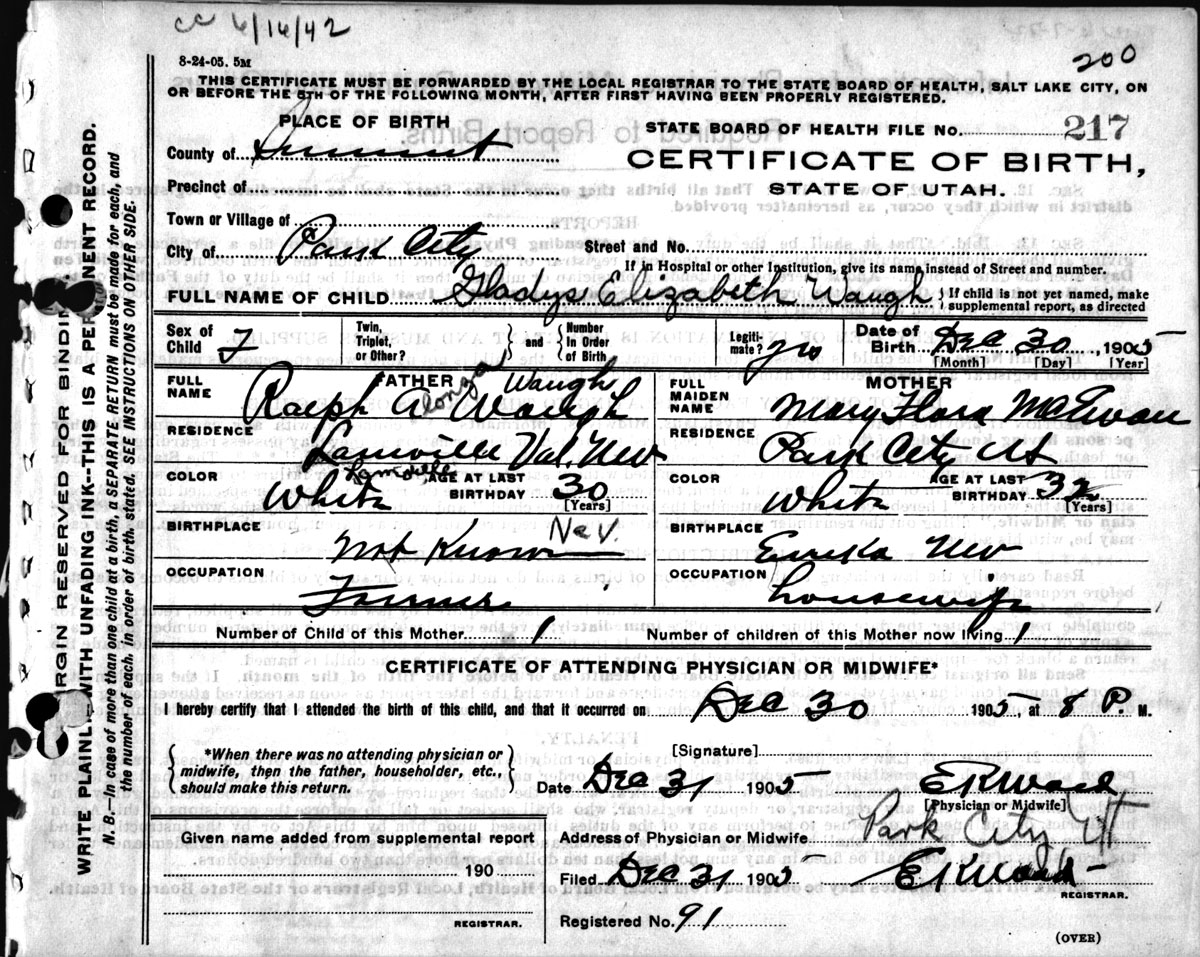 cc 6/16/42
200
8-24-05. 5M
THIS CERTIFICATE MUST BE FORWARDED BY THE LOCAL REGISTRAR TO THE STATE BOARD OF HEALTH, SALT LAKE CITY, ON
OR BEFORE THE 5TH OF THE FOLLOWING MONTH, AFTER FIRST HAVING BEEN PROPERLY REGISTERED.
PLACE OF BIRTH
STATE BOARD OF HEALTH FILE No. 217
County of Summit
CERTIFICATE OF BIRTH,
Precinct of
STATE OF UTAH.
Town or Village of
City of Park City
Street and No.
If in Hospital or other Institution, give its name, instead of Street and number.
FULL NAME OF CHILD Gladys Elizabeth Waugh } If child is not yet named, make supplemental report, as directed
Sex of Child F Twin, Triplet, or Other? } and { Number In Order of Birth Legiti-mate? yes Date of Birth Dec 30, 1905
[Month] [Day] [Year]
FATHER
MOTHER
FULL NAME Ralph A long Waugh Waugh
FULL MAIDEN NAME Mary Flora McEwan
RESIDENCE Lamoille Val. Nev
Lamoille
RESIDENCE Park City Ut
COLOR White AGE AT LAST BIRTHDAY 30 [Years]
COLOR White AGE AT LAST BIRTHDAY 32 [Years]
BIRTHPLACE Not Known Nev.
BIRTHPLACE Eureka Nev
OCCUPATION Farmer
OCCUPATION housewife
Number of Child of this Mother 1 Number of children of this Mother now living 1
CERTIFICATE OF ATTENDING PHYSICIAN OR MIDWIFE*
I hereby certify that I attended the birth of this child, and that it occurred on Dec 30 1905, at 8 P. M.
{ *When there was no attending physician or midwife, then the father, householder, etc., should make this return. }
[Signature]
Date Dec 31 1905 E K Ward
[Physician or Midwife]
Park City Ut
Given name added from supplemental report
190
REGISTRAR.
Address of Physician or Midwife
Filed Dec 31 1905 E K Ward
REGISTRAR.
Registered No. 91
(OVER)
MARGIN RESERVED FOR BINDING.
WRITE PLAINLY WITH UNFADING INK--THIS IS A PERMANENT RECORD.
N. B.--In case of more than one child at a birth, a SEPARATE RETURN must be made for each, and
the number of each, in order of birth, stated. SEE INSTRUCTIONS ON OTHER SIDE.